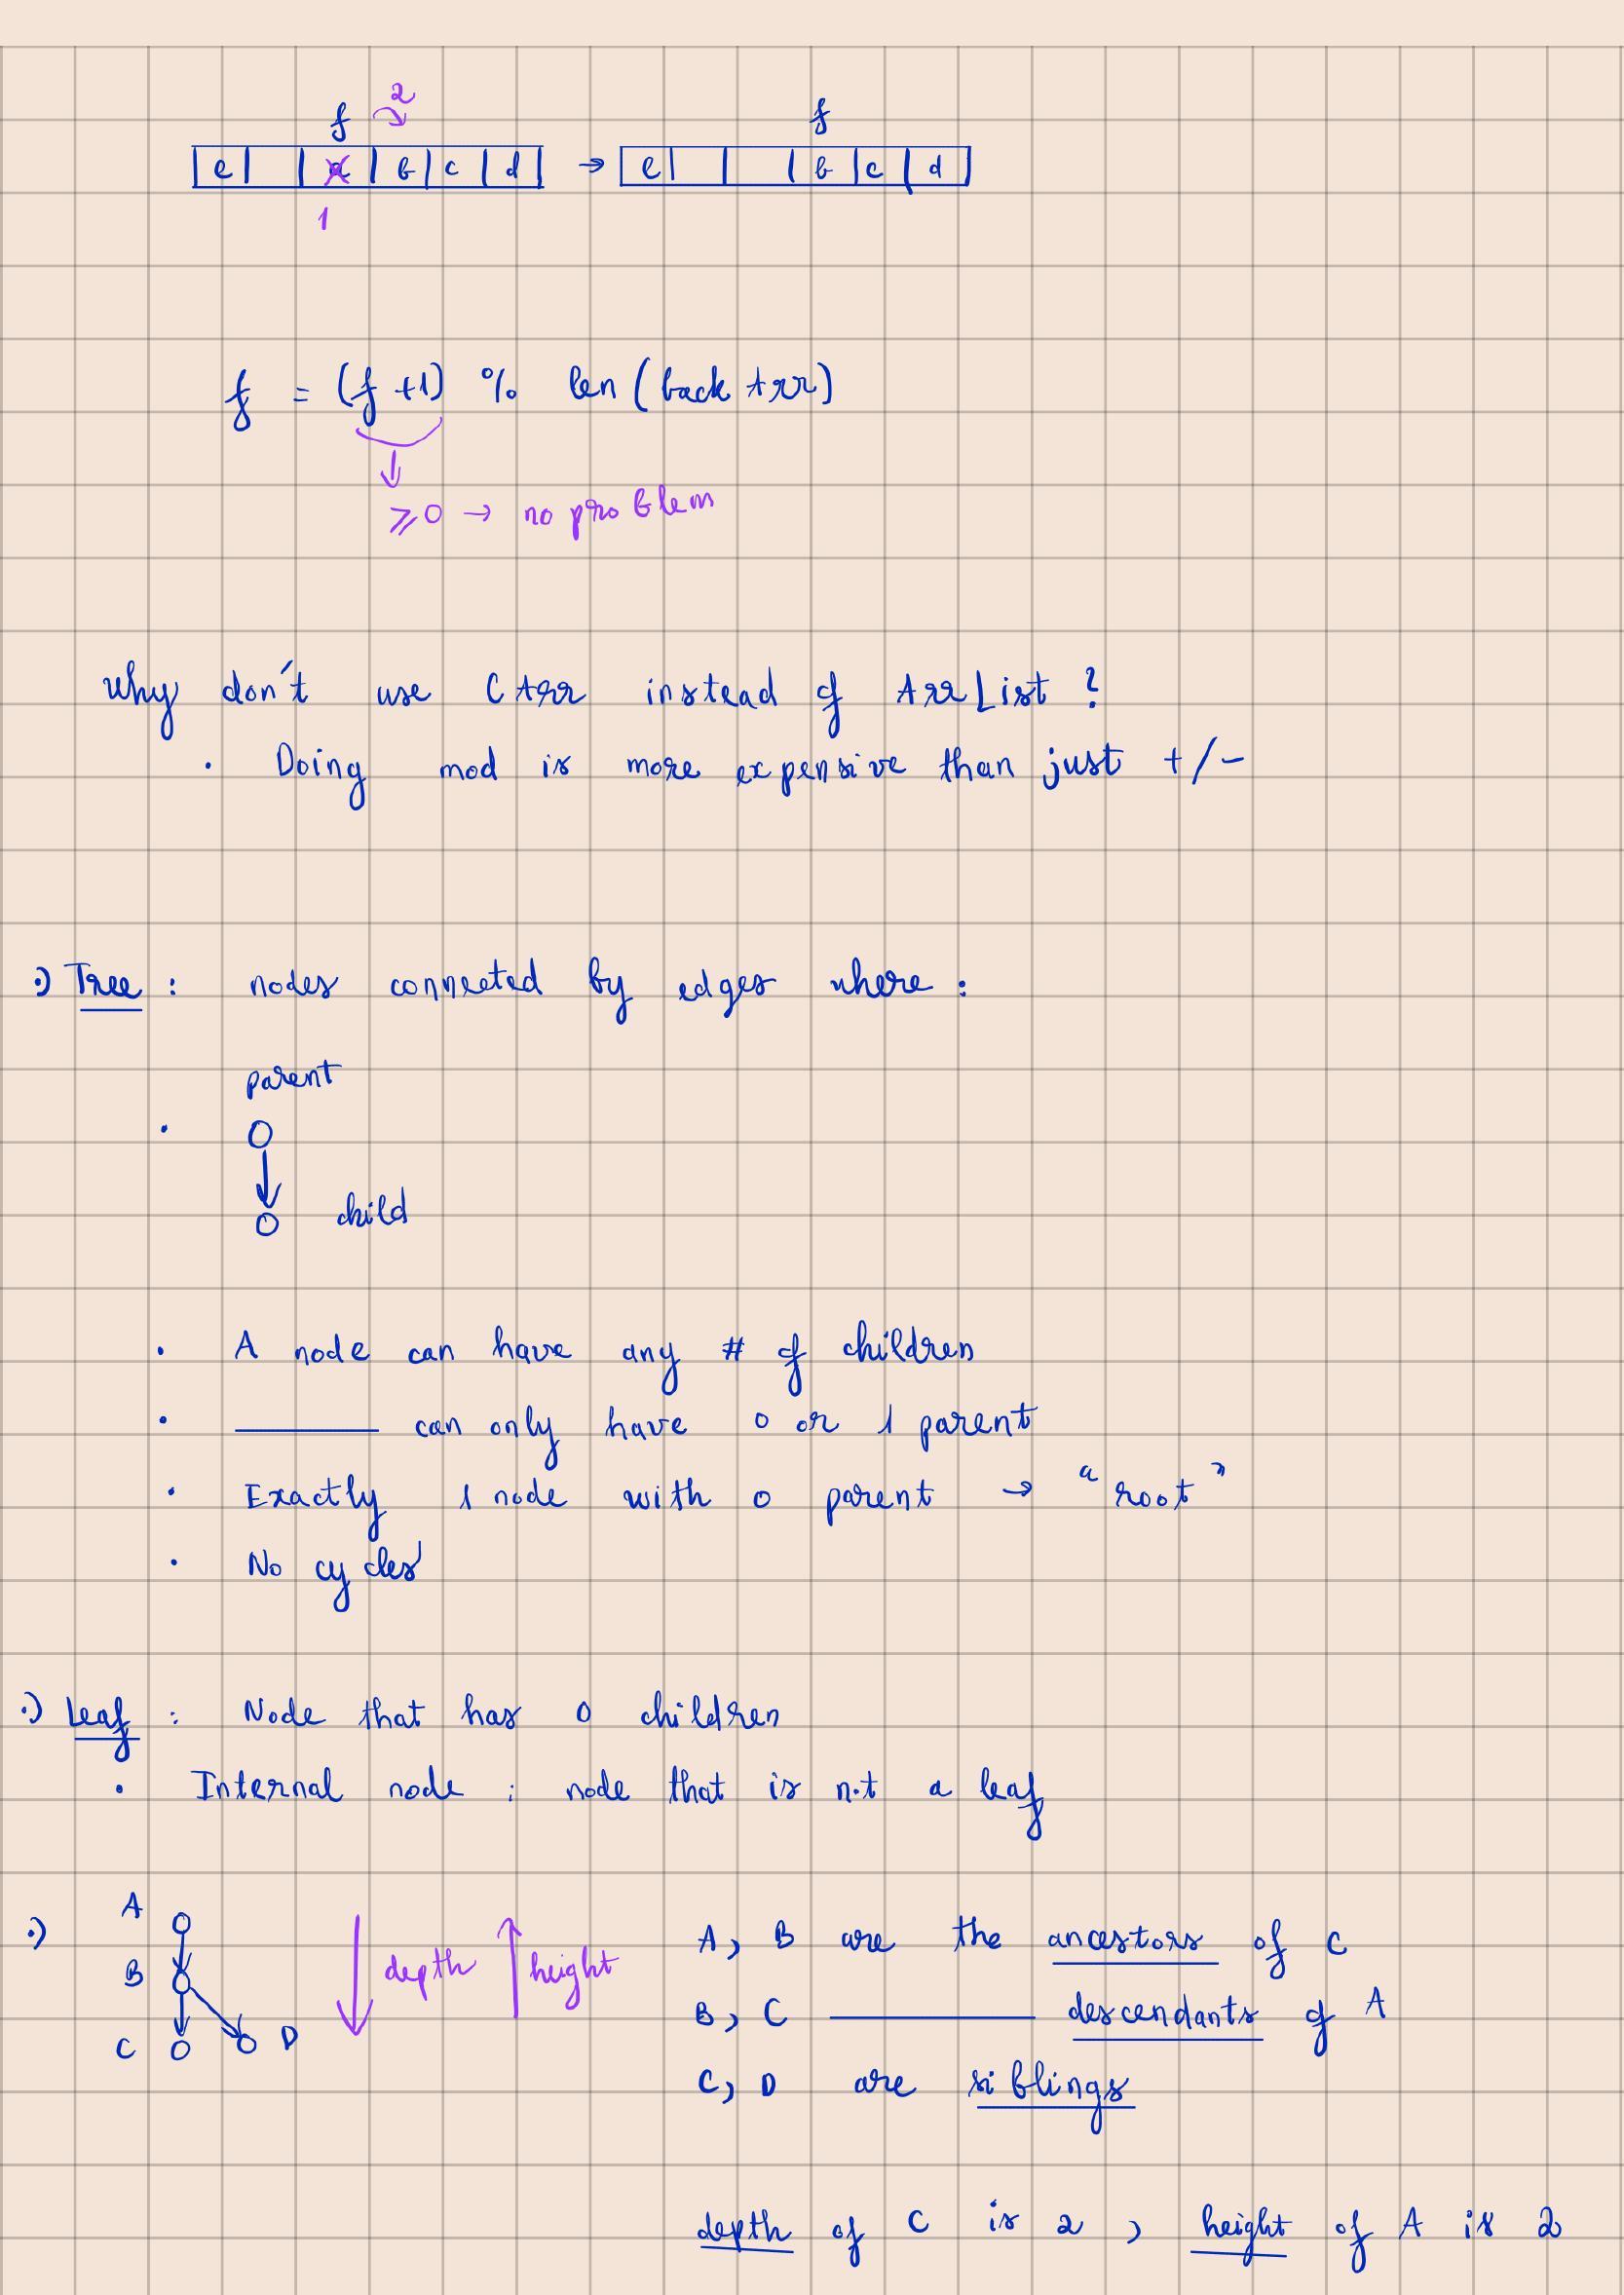 f 2 f
e a b c d → e b c d
1
f = (f+1) % len(backArr)
≥0 → no problem
Why don't use CArr instead of ArrList ?
· Doing mod is more expensive than just +/-
·) Tree : nodes connected by edges where :
parent
·
child
· A node can have any # of children
· ——— can only have 0 or 1 parent
· Exactly 1 node with 0 parent → "root"
· No cycles
·) Leaf : Node that has 0 children
· Internal node : node that is not a leaf
·) A depth height A, B are the ancestors of C
B B, C ——— descendants of A
C D C, D are siblings
depth of C is 2 , height of A is 2